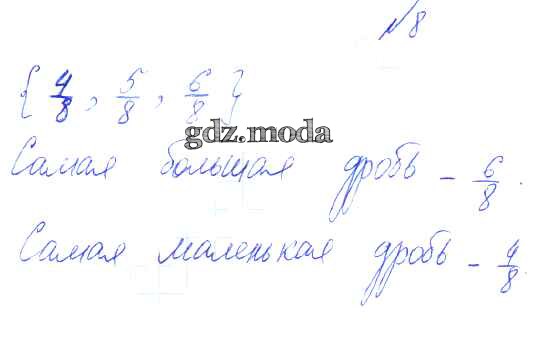 №8
{4/8, 5/8, 6/8}
gdz.moda
Самая большая дробь - 6/8.
Самая маленькая дробь - 4/8.